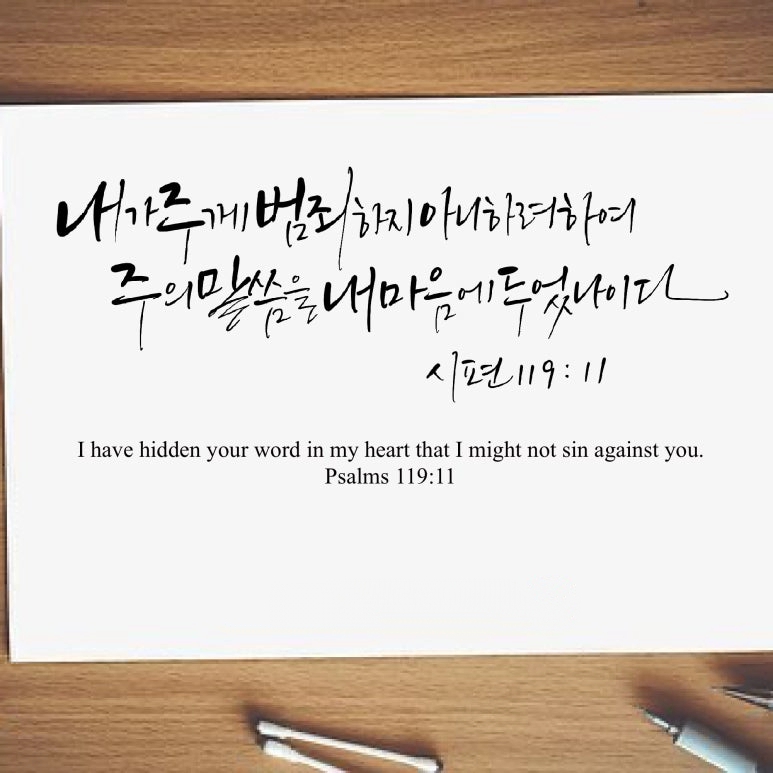 내가주께범죄하지아니하려하여
주의말씀을내마음에두었나이다
시편119:11
I have hidden your word in my heart that I might not sin against you.
Psalms 119:11